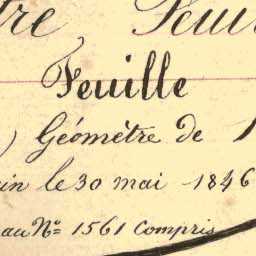 Feuille
Géométre de
le 30 mai 1846
au Nº 1561 Compris